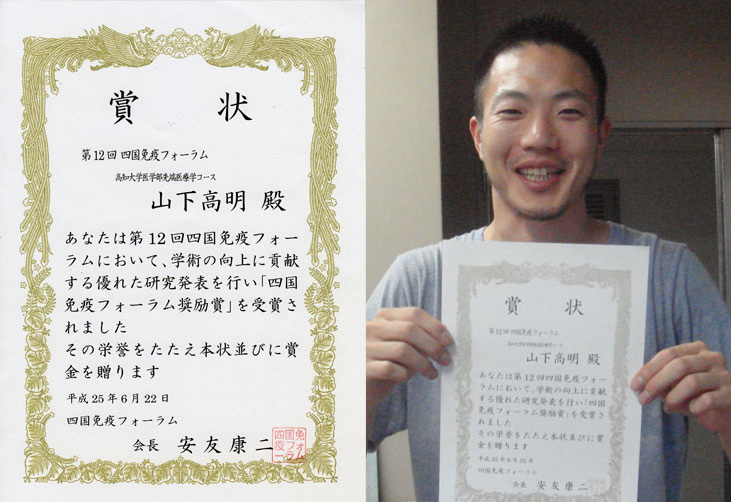 賞 状
第12回 四国免疫フォーラム
高知大学医学部先端医療学コース
山下高明 殿
あなたは第12回四国免疫フォー
ラムにおいて、学術の向上に貢献
する優れた研究発表を行い「四国
免疫フォーラム奨励賞」を受賞さ
れました
その栄誉をたたえ本状並びに賞
金を贈ります
平成25年6月22日
四国免疫フォーラム
会長 安友康二
賞 状
第12回 四国免疫フォーラム
高知大学医学部先端医療学コース
山下高明 殿
あなたは第12回四国免疫フォー
ラムにおいて、学術の向上に貢献
する優れた研究発表を行い「四国
免疫フォーラム奨励賞」を受賞さ
れました
その栄誉をたたえ本状並びに賞
金を贈ります
平成25年6月22日
四国免疫フォーラム
会長 安友康二